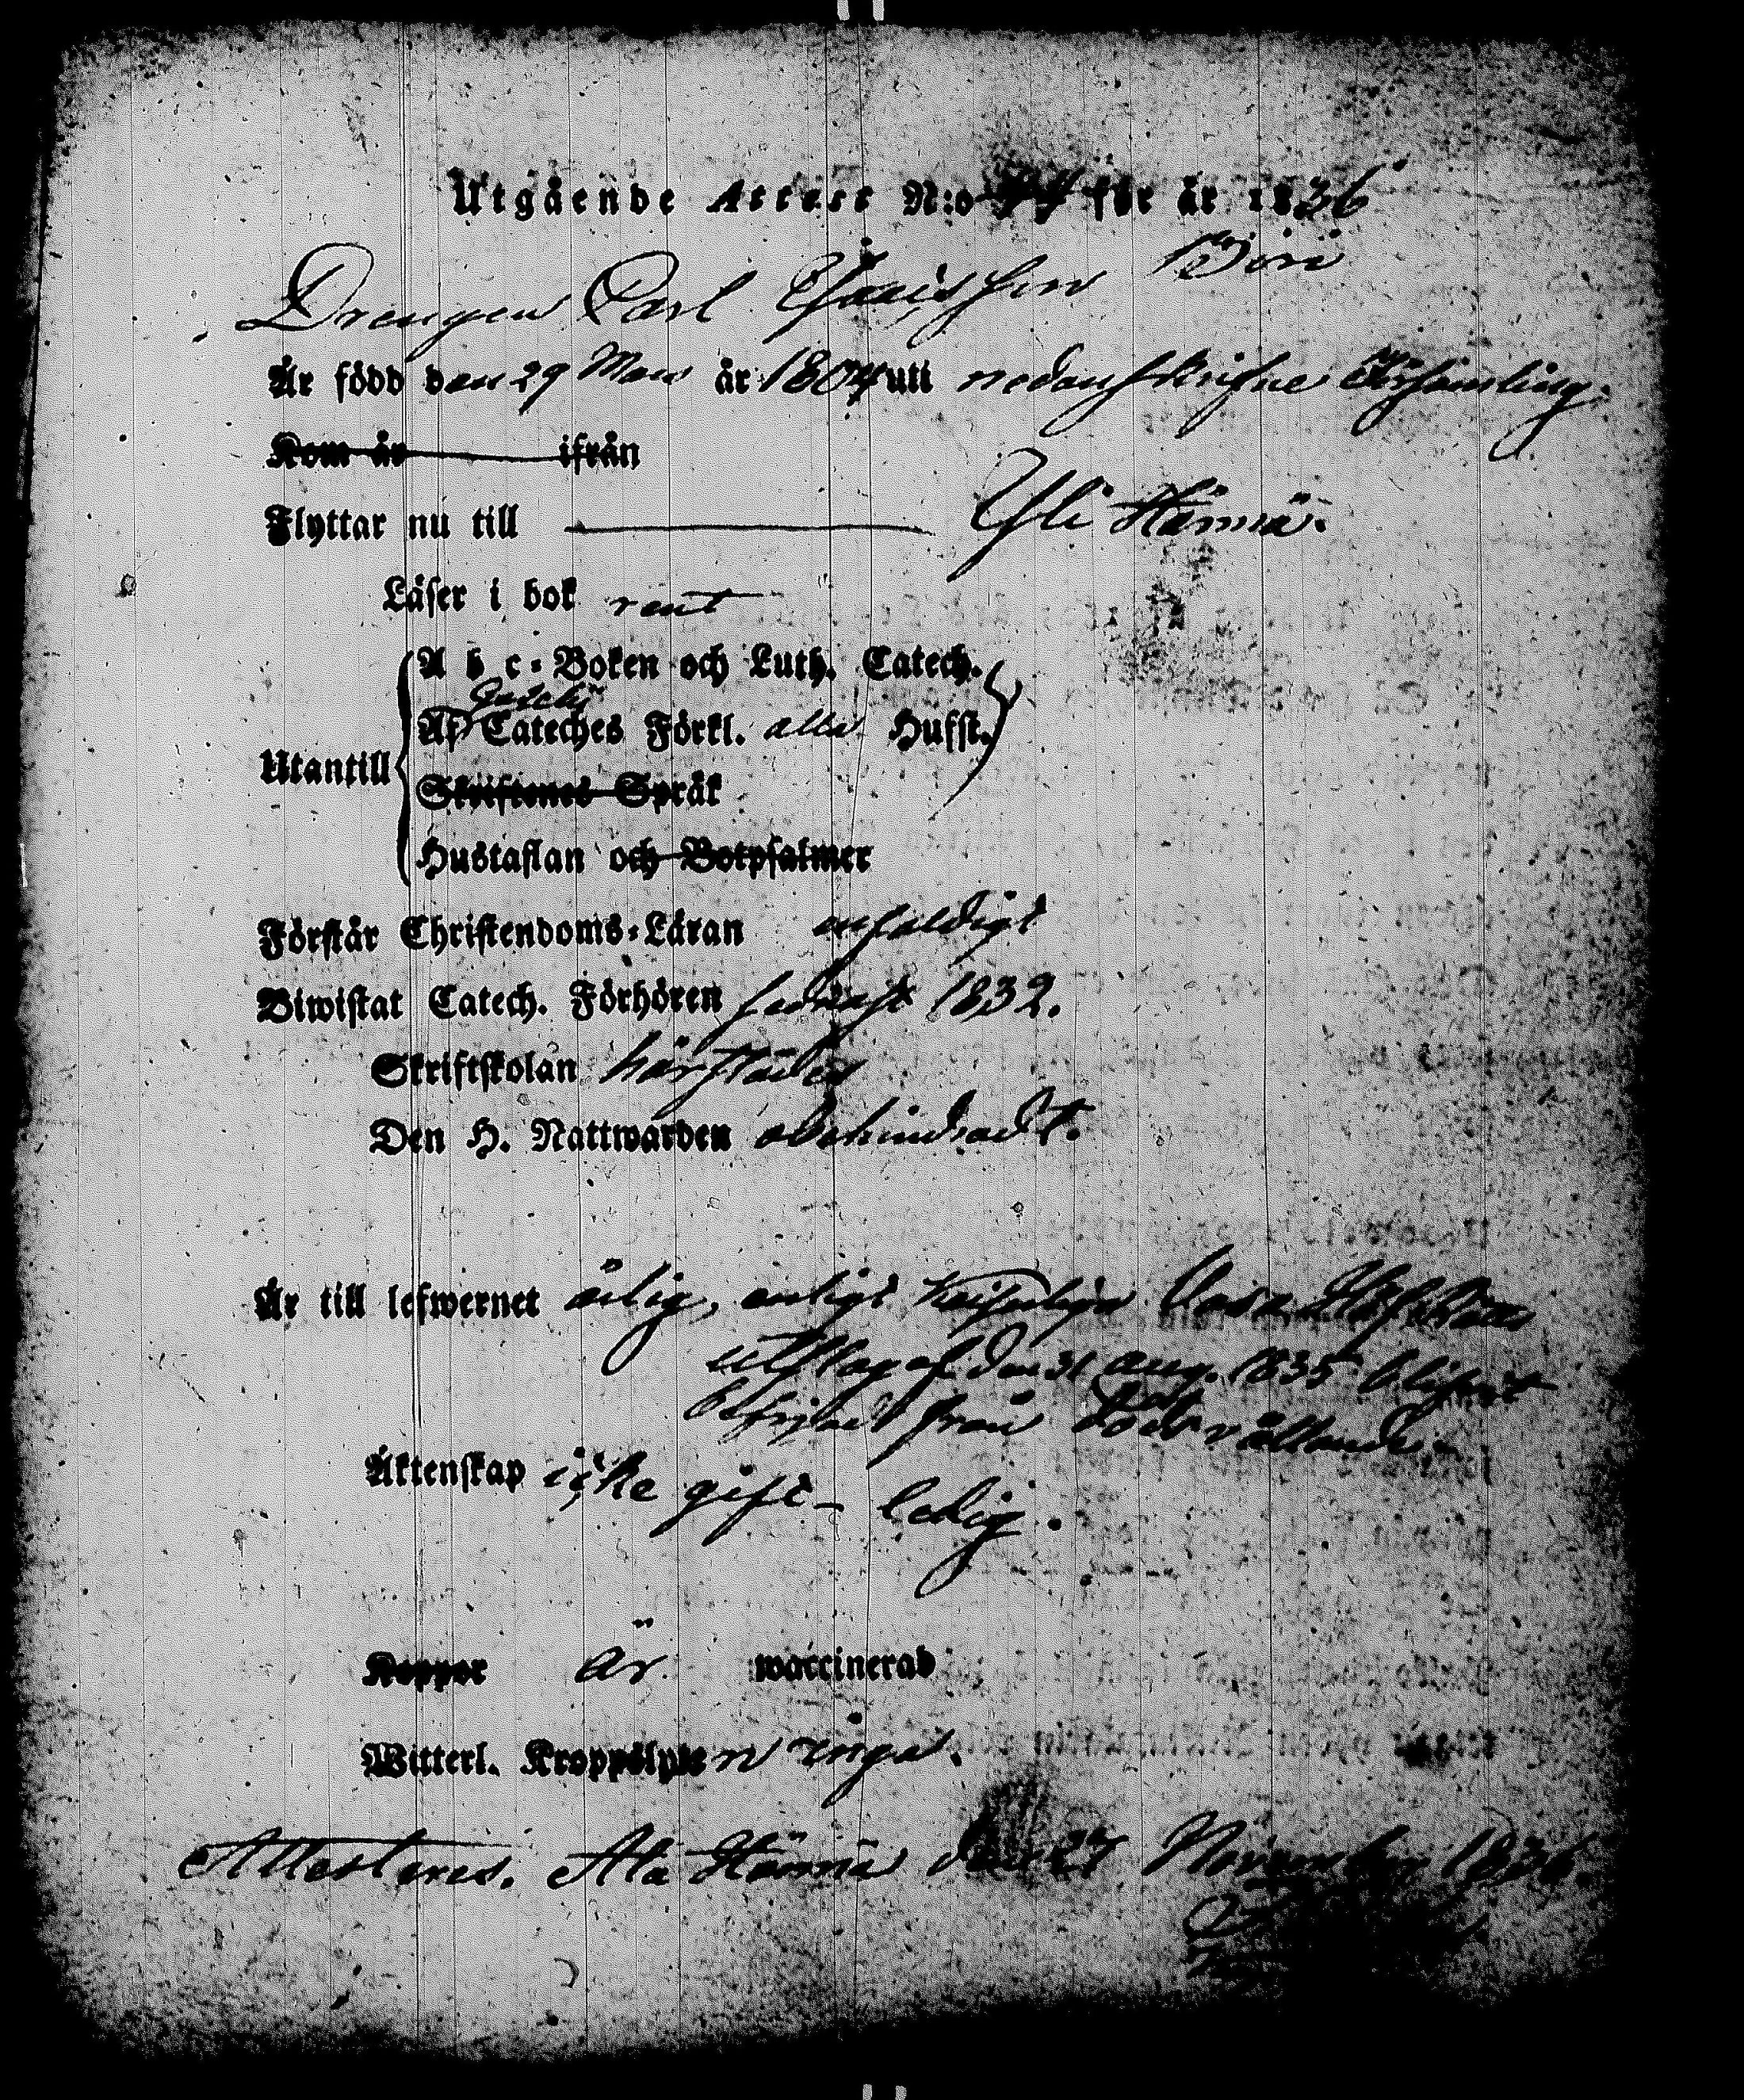 Utgående Attest N:o 44 för år 1836
Drengen Carl Esaisson Böri
Är född den 29 Mars år 1804 uti nedanskrifne Församling.
Kom år ifrån
Flyttar nu till Yli Härmä.
Läser i bok rent
A b c-Boken och Luth. Catech.
Af Cateches Förkl. alla Hufst.
Utantill
Skriftenes Språk
Hustaflan och Botpsalmer
Förstår Christendoms-Läran enfaldigt
Biwistat Catech. Förhören sednast 1832.
Skriftskolan härstädes
Den H. Nattwarden obehindradt.
Är till lefwernet ärlig, enligt Kejserliga Vasa Hof Rätts
utslag af den 31 aug. 1835 blifvit
befriad från vållande
Äktenskap icke gift - ledig.
Koppor är waccinerad
Witterl. Kropps lyten inga.
Attesteras. Ala Härmä den 27 November 1836